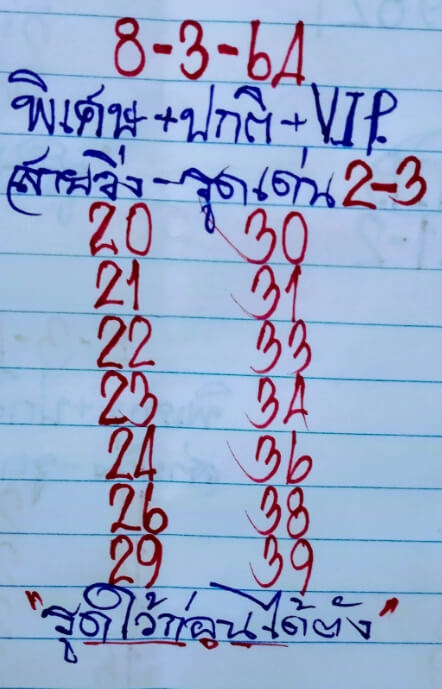 8-3-64
พิเศษ+ปกติ+V.I.P.
สายวิ่ง-รูดเด่น 2-3
20 30
21 31
22 33
23 34
24 36
26 38
29 39
"รูดไว้ก่อนได้ตัง"